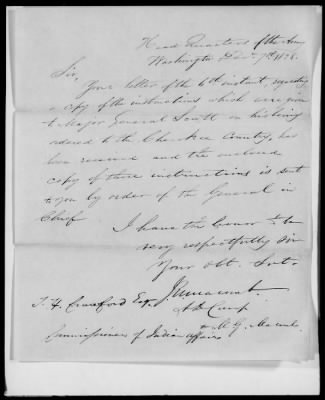 Head Quarters of the Army
Washington Decr. 7th 1838.
Sir,
Your letter of the 6th instant, requesting
a copy of the instructions which were given
to Major General Scott on his being
ordered to the Cherokee Country, has
been received and the enclosed
copy of those instructions is sent
to you by order of the General in
Chief
I have the honor to be
very respectfully Sir
Your Obt. Servt.
A D Camp
to M. G. Macomb
T. H. Crawford Esq.
Commissioner of Indian Affairs